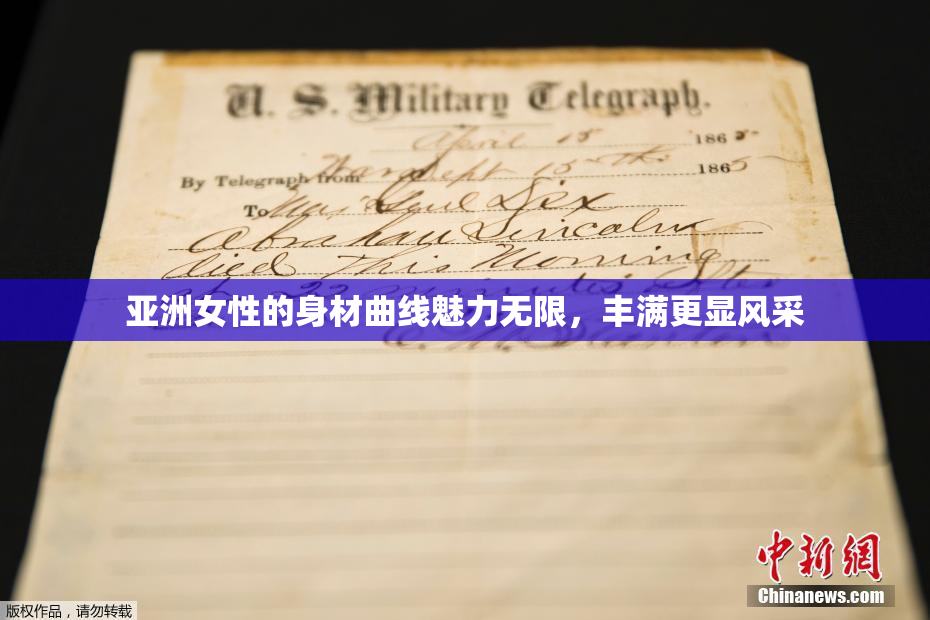 U. S. Military Telegraph.
April 15 1865
By Telegraph from War Dept 15th 1865
To Maj Genl Dix
Abraham Lincoln
died This Morning
at 22 minutes after
亚洲女性的身材曲线魅力无限，丰满更显风采
中新網
Chinanews.com
版权作品，请勿转载